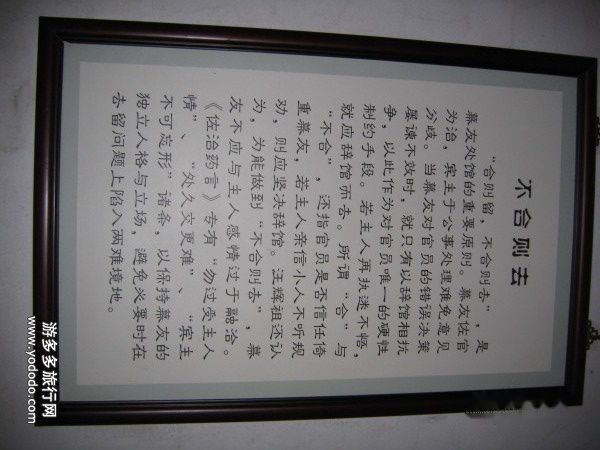 不合则去
“合则留，不合则去”，是
幕友处馆的重要原则。幕友佐官
为治，宾主于公事处理难免意见
分歧。当幕友对官员的错误决策
屡谏不效时，就只有以辞馆相抗
争，以此作为对官员唯一的硬性
制约手段。若主人再执迷不悟，
就应辞馆而去。所谓“合”与
“不合”，还指官员是否信任倚
重幕友，若主人亲信小人不听规
劝，则应坚决辞馆。汪辉祖还认
为，为能做到“不合则去”，幕
友不应与主人感情过于融洽。
《佐治药言》专有“勿过受主人
情”、“处久交更难”、“宾主
不可忘形”诸条，以保持幕友的
独立人格与立场，避免必要时在
去留问题上陷入两难境地。
游多多旅行网
www.yododo.com